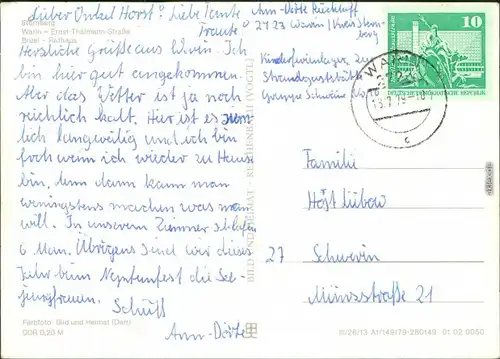 Sternberg
Warin - Ernst-Thälmann-Straße
Brüel - Rathaus
Lieber Onkel Horst! Liebe Tante
Traute!
Herzliche Grüße aus Warin. Ich
bin hier gut angekommen.
Aber das Wetter ist ja noch
reichlich kalt. Hier ist es ziem-
lich langweilig und ich bin
froh wenn ich wieder zu Hause
bin, denn dann kann man
wenigstens machen was man
will. In unserem Zimmer schlafen
6 Man. Übrigens sind wir dieses
Jahr beim Neptunfest die See-
jungfrauen.
Schuß
Ann-Dörte
Farbfoto: Bild und Heimat (Dem)
DDR 0,20 M
BILD UND HEIMAT · REICHENBACH (VOGTL)
Ann-Dörte
2727 Warin / Kreis Stern-
berg
Kinderferienlager
10
WARIN
2727
c
DEUTSCHE DEMOKRATISCHE REPUBLIK
Familie
Horst Lübow
27 Schwerin
Münzstraße 21
III/26/13 A1/149/79-280149 01 02 0050